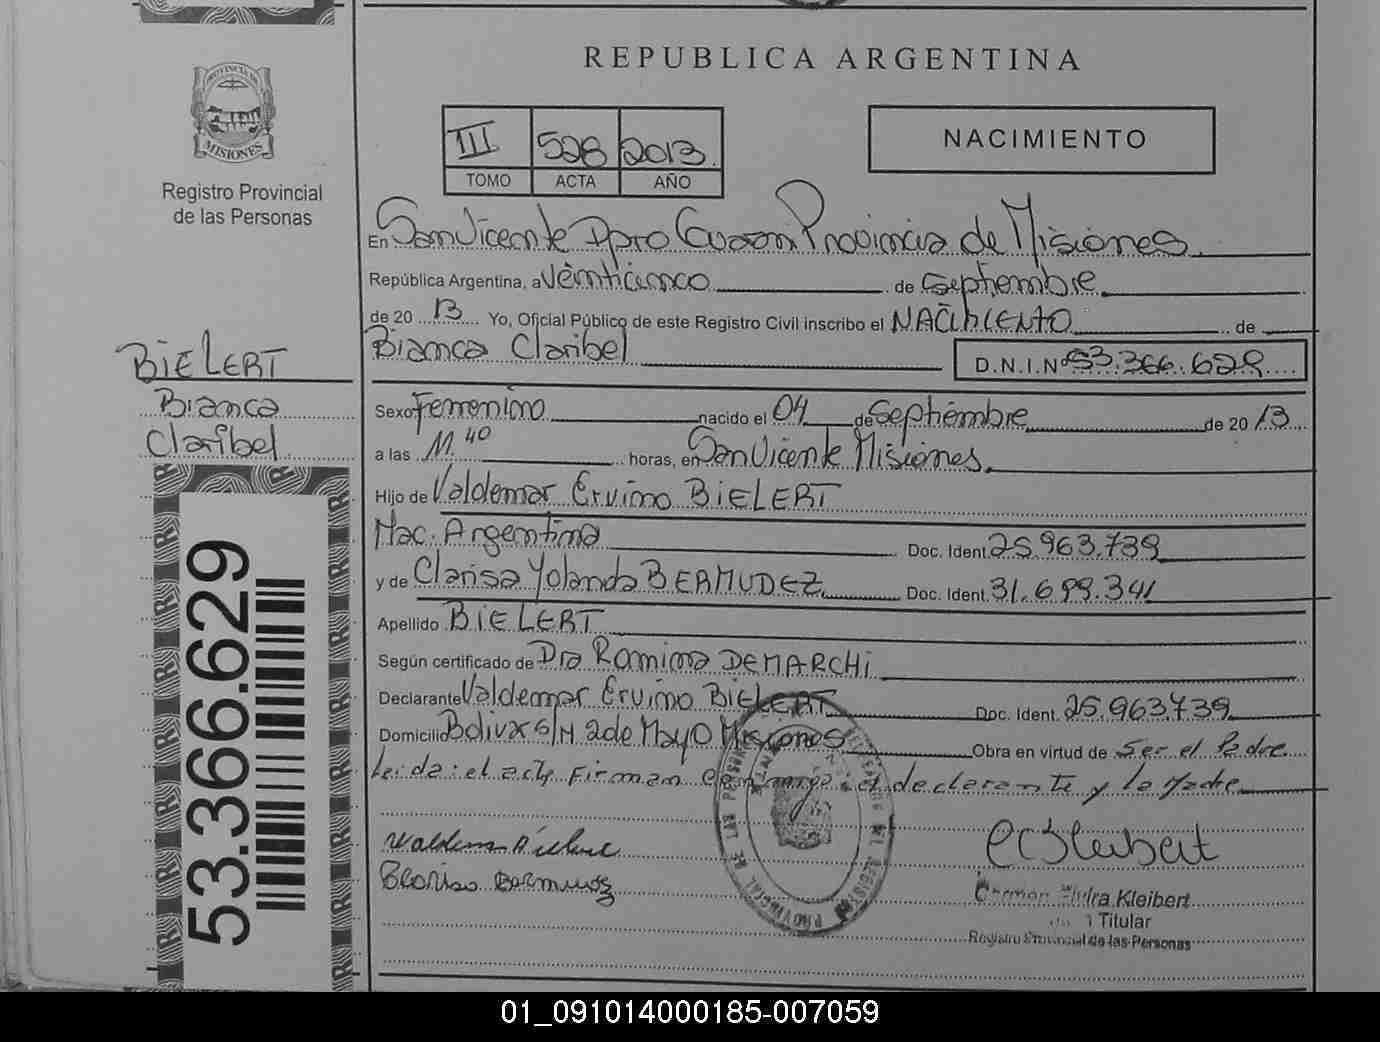 REPUBLICA ARGENTINA
PROVINCIA DE
MISIONES
Registro Provincial
de las Personas
III 528 2013.
TOMO ACTA AÑO
NACIMIENTO
En San Vicente Dpto Guarani Provincia de Misiones.
República Argentina, a Veinticinco de Septiembre
de 20 13 Yo, Oficial Público de este Registro Civil inscribo el NACIMIENTO de
Bianca Claribel D.N.I.Nº 53.366.629
BIELERT
Bianca
Claribel
53.366.629
Sexo Femenino nacido el 04 de Septiembre de 20 13
a las 11.40 horas, en San Vicente Misiones.
Hijo de Valdemar Ervino BIELERT
Nac. Argentina Doc. Ident. 25.963.739
y de Clarisa Yolanda BERMUDEZ Doc. Ident. 31.699.341
Apellido BIELERT
Según certificado de Dra Romina DEMARCHi
Declarante Valdemar Ervino BIELERT Doc. Ident. 25.963.739
Domicilio Bolivar S/N 2 de Mayo Misiones Obra en virtud de Ser el Padre
Leida el acta Firman conmigo el declarante y la Madre
Carmen Elvira Kleibert
Titular
Registro Provincial de las Personas
01_091014000185-007059